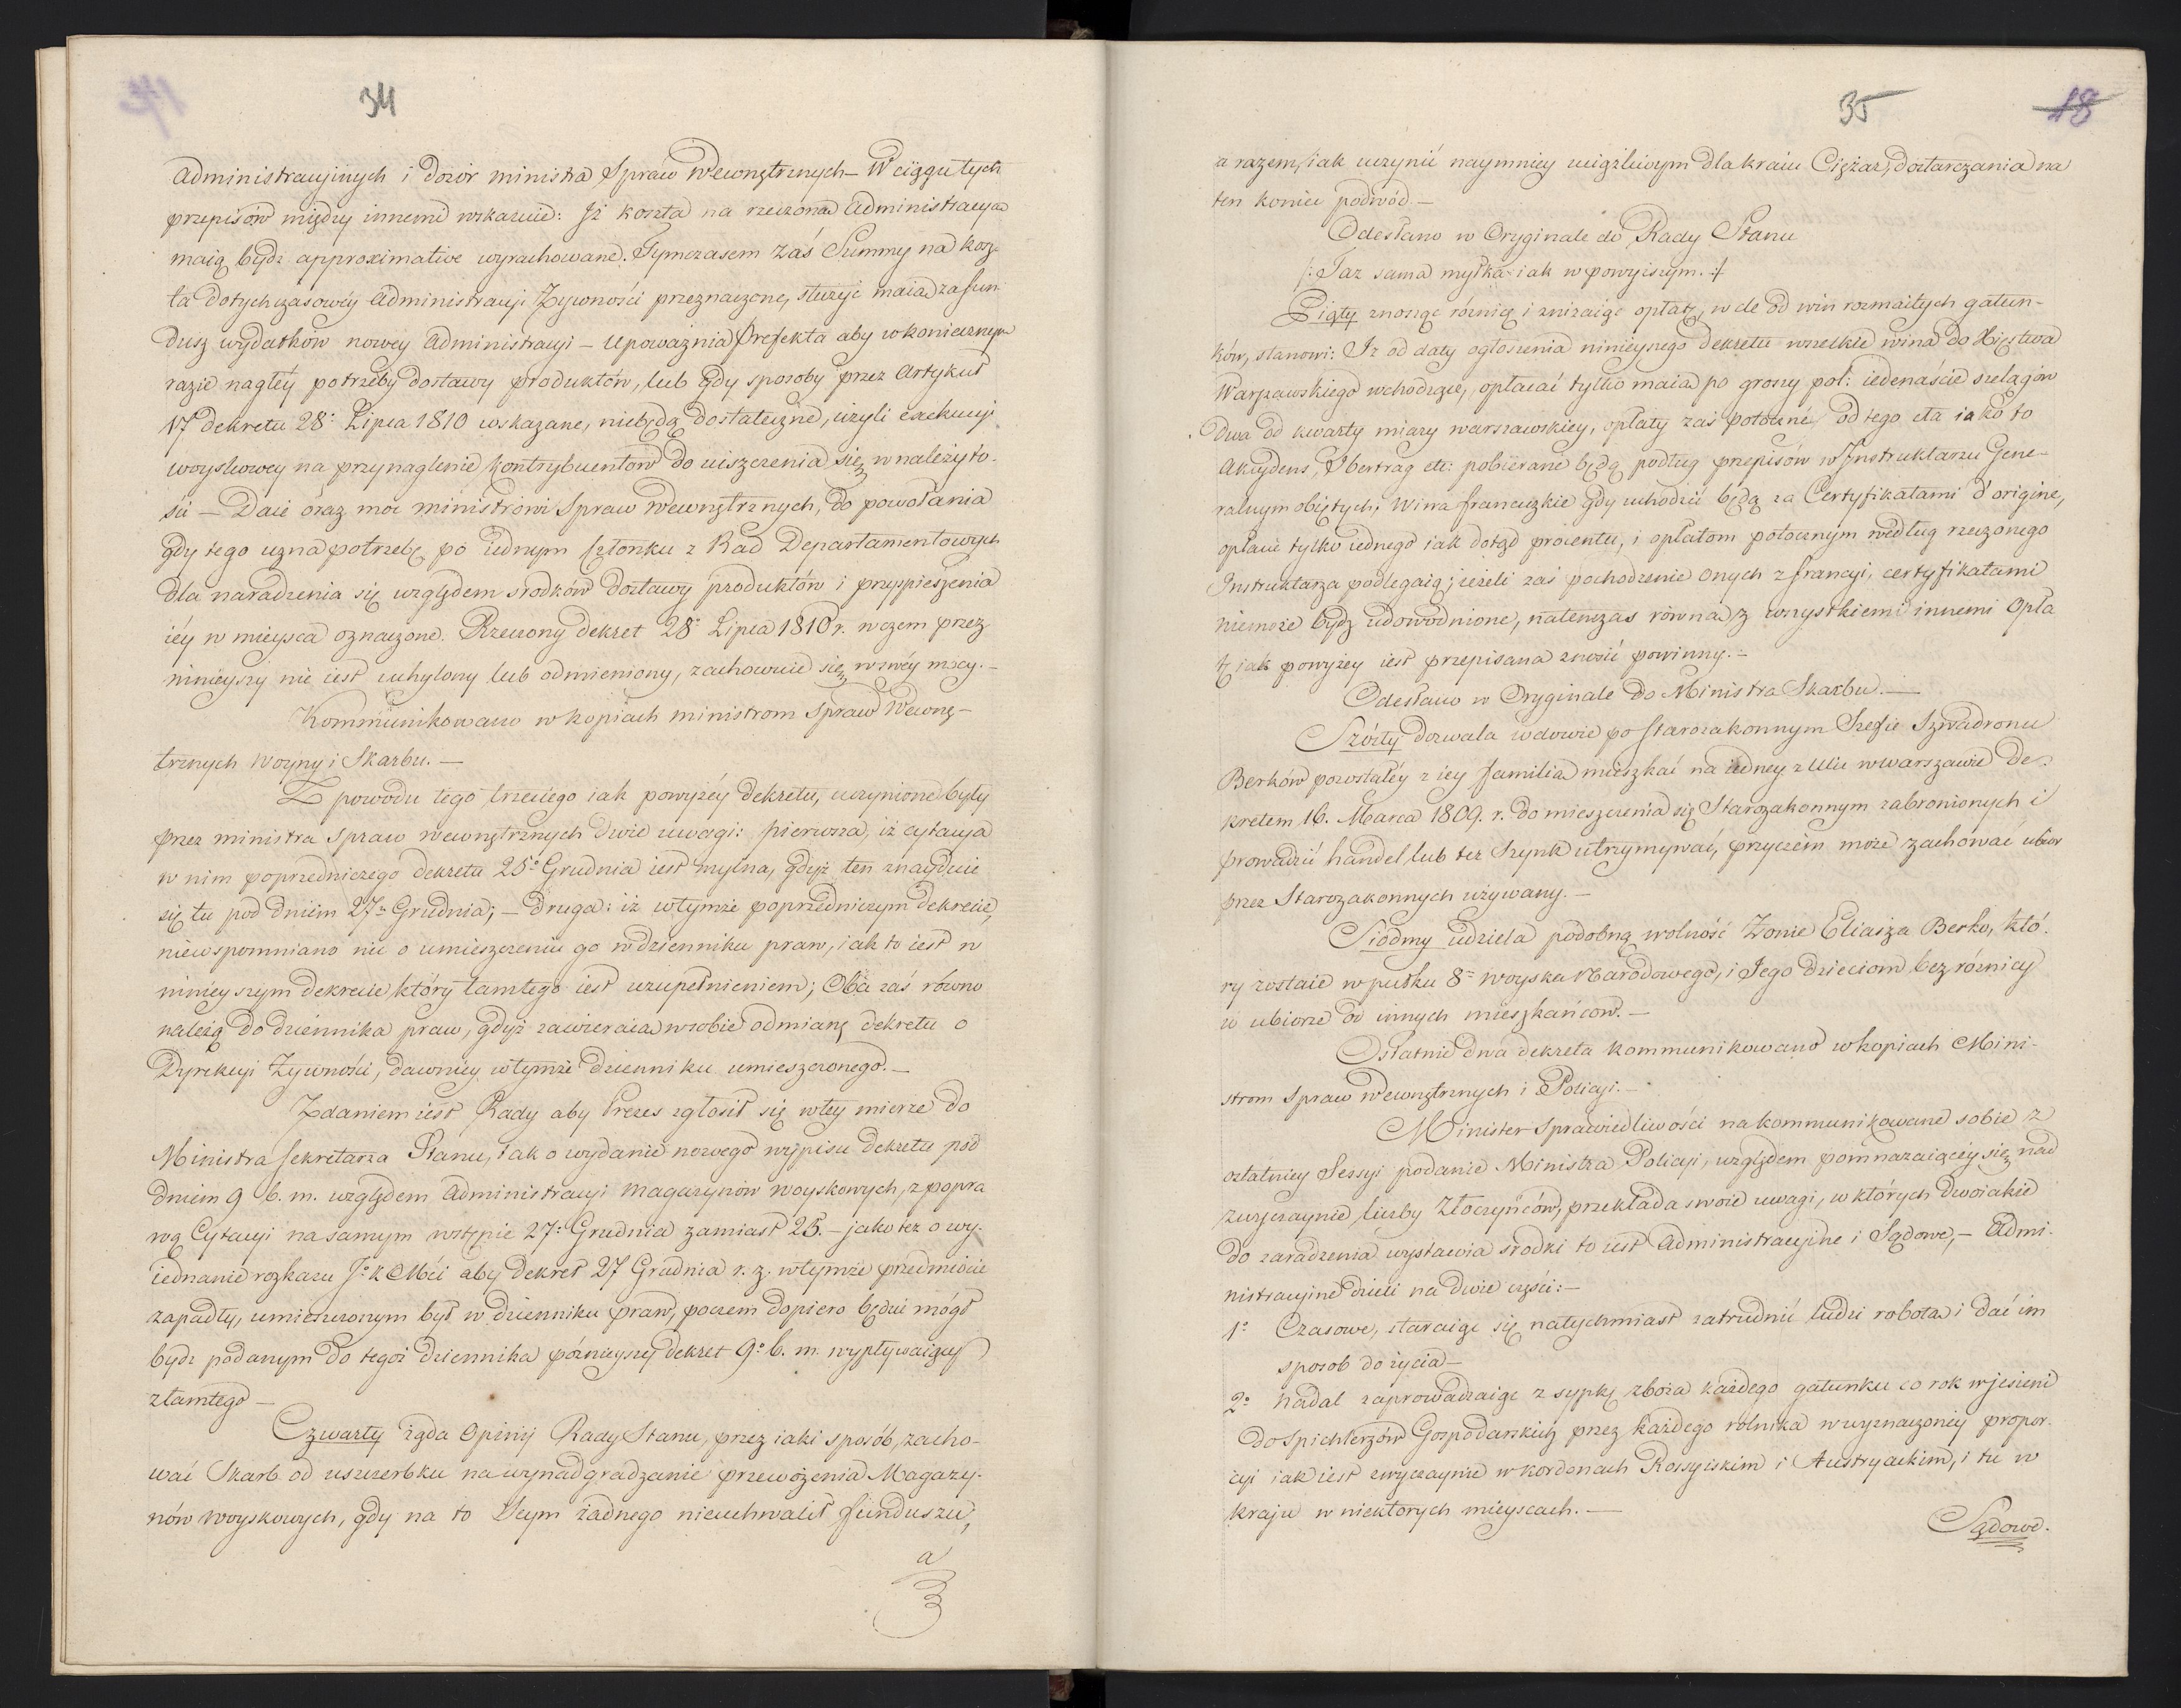 34
Administracyinych i dozór ministra Spraw Wewnętrznych – W ciągu tych
przepisów między innemi wskazuie: Iż koszta na rzeczoną Administracyą
maią bydź approximative wyrachowane. Tymczasem zaś Summy na kosz-
ta dotychczasowéy Administracyi Żywności przeznaczone, służyć maią za fun-
dusz wydatków nowey Administracyi – Upoważnia Prefekta aby w koniecznym
razie nagłéy potrzeby dostawy produktów, lub gdy sposoby przez Artykuł
17 dekretu 28º Lipca 1810 wskazane, niebędą dostateczne, użyli exekucyi
woyskowey na przynaglenie kontrybuentów do uiszczenia się w należyto-
ści – Daie oraz moc ministrowi Spraw Wewnętrznych, do powołania
gdy tego uzna potrzebę po iednym Członku z Rad Departamentowych
dla naradzenia się względem srodków dostawy produktów i przyspieszenia
iéy w mieysca oznaczone. Rzeczony dekret 28º Lipca 1810 r. w czem przez
ninieyszy nie iest uchylony lub odmieniony, zachowuie się w swéy mocy. –
Kommunikowano w kopiach ministrom Spraw Wewnę-
trznych Woyny i Skarbu. –
Z powodu tego trzeciego iak powyżéy dekretu, uczynione były
przez ministra Spraw wewnętrznych dwie uwagi: pierwsza, iż cytacya
w nim poprzedniczego dekretu 25º Grudnia iest mylna, gdyż ten znayduie
się tu pod dniem 27º Grudnia; – druga: iż w tymże poprzedniczym dekrecie,
niewspomniano nic o umieszczeniu go w dzienniku praw, iak to iest w
ninieyszym dekrecie, który tamtego iest uzupełnieniem; Oba zaś równo
należą do dziennika praw, gdyż zawieraią w sobie odmianę dekretu o
Dyrekcyi Żywności, dawniey w tymże dzienniku umieszczonego. –
Zdaniem iest Rady aby Prezes zgłosił się w tey mierze do
Ministra Sekretarza Stanu, tak o wydanie nowego wypisu dekretu pod
dniem 9 b. m. względem Administracyi Magazynów woyskowych, z popra
wą Cytacyi na samym wstępie 27º Grudnia zamiast 25. – jako też o wy-
iednanie rozkazu J. K Mci aby dekret 27 Grudnia r. z. w tymże przedmiocie
zapadły, umieszczonym był w dzienniku praw, poczem dopiero będzie mógł
bydź podanym do tegoż dziennika pózniéyszy dekret 9º b. m. wypływaiący
z tamtego –
Czwarty żąda Opinij Rady Stanu, przez iaki sposób, zacho-
wać Skarb od uszczerbku na wynadgradzanie przewożenia Magazy-
nów woyskowych, gdy na to Seym żadnego nieuchwalił funduszu,
a
35
18
a razem, iak uczynić naymniey uciążliwym dla kraiu Ciężar, dostarczania na
ten koniec podwód. –
Odesłano w Oryginale do Rady Stanu
/: Taż sama myłka iak w powyższym. :/
Piąty znosząc różnicę i zniżaiąc opłatę, w cle od win rozmaitych gatun-
ków, stanowi: Iż od daty ogłoszenia ninieyszego dekretu wszelkie wina do Xięstwa
Warszawskiego wchodzące, opłacać tylko maią po groszy pol: iedenaście szelągów
dwa od kwarty miary warszawskiey, opłaty zaś potoczne od tego cła iako to
Akcydens, Ibertrag etc: pobierane będą podług przepisów w Instruktarzu Gene-
ralnym obiętych; Wina francuzkie gdy wchodzić będą za Certyfikatami d'origine,
opłacie tylko iednego iak dotąd procentu, i opłatom potocznym według rzeczonego
Instruktarza podlegaią; ieżeli zaś pochodzenie onych z francyi, certyfikatami
niemoże bydź udowodnione, natenczas równą z wszystkiemi innemi Opła
tę iak powyżey iest przepisana znosić powinny. –
Odesłano w Oryginale do Ministra Skarbu. –
Szósty dozwala wdowie po Starozakonnym Szefie Szwadronu
Berków pozostałéy z iey familią mieszkać na iedney z Ulic w Warszawie De-
kretem 16. Marca 1809. r. do mieszczenia się Starozakonnym zabronionych i
prowadzić handel, lub też Szynk utrzymywać, przyczem może zachować ubior
przez Starozakonnych używany. –
Siódmy udziela podobną wolność Żonie Eliasza Berko, któ-
ry zostaie w pułku 8º woyska Narodowego, i Jego dzieciom bez różnicy
w ubiorze od innych mieszkańców. –
Ostatnie dwa dekreta kommunikowano w kopiach Mini-
strom Spraw Wewnętrznych i Policyi. –
Minister Sprawiedliwości na kommunikowane sobie z
ostatniey Sessyi podanie Ministra Policyi, względem pomnażaiącéy się nad
zwyczaynie liczby Złoczyńców, przekłada swoie uwagi, w których dwoiakie
do zaradzenia wystawia srodki to iest Administracyine i Sądowe, – Admi-
nistracyine dzieli na dwie części: –
1º Czasowe, staraiąc się natychmiast zatrudnić ludzi robotą i dać im
sposob do życia –
2º Nadal zaprowadzaiąc zsypkę zboża każdego gatunku co rok w jesieni
do Spichlerzów Gospodarskich przez każdego rolnika w wyznaczoney propor-
cyi iak iest zwyczaynie w kordonach Rossyiskim i Austryackim, i tu w
kraju w niektórych mieyscach. –
Sądowe.